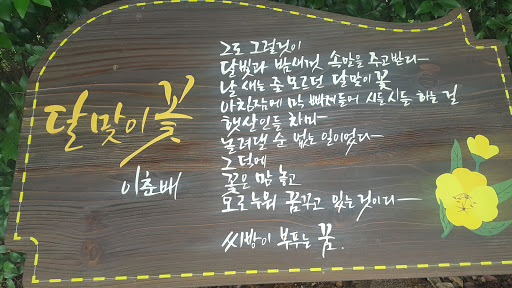 달맞이꽃
이춘배
그도 그럴것이
달빛과 밤새껏 속말을 주고받다
날 새는 줄 모르던 달맞이꽃
아침잠에 막 빠져들어 시들시들 하는 걸
햇살인들 차마
놀려댈 순 없는 일이었다
그 덕에
꽃은 맘 놓고
모로누워 꿈꾸고 있는것이다
씨방이 부푸는 꿈.